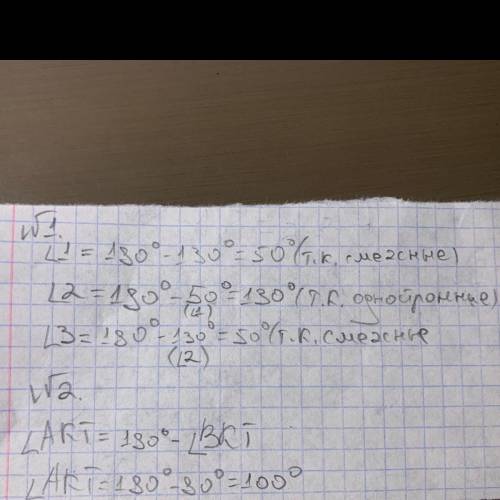 №1.
∠1 = 180° - 130° = 50° (т.к. смежные)
∠2 = 180° - 50° = 130° (т.к. однойронные)
(∠1)
∠3 = 180° - 130° = 50° (т.к. смежные
(∠2)
№2.
∠AKT = 180° - ∠BKT
∠AKT = 180° - 80° = 100°